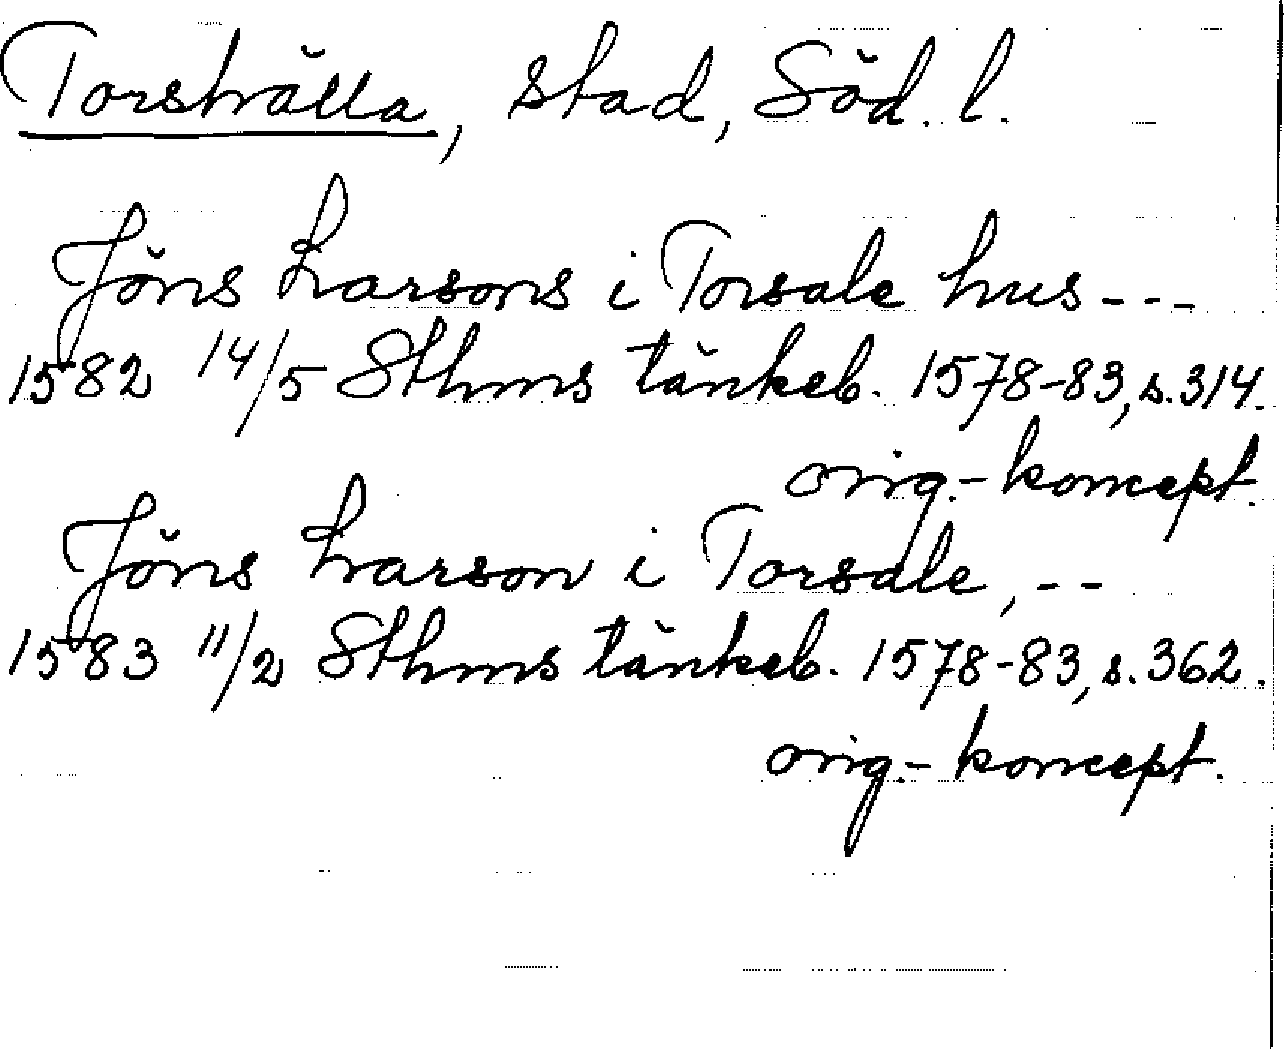 Torshälla, stad, Söd. l.
Jöns Larsons i Torsale hus---
1582 14/5 Sthms tänkeb. 1578-83, s. 314.
orig.-koncept.
Jöns Larson i Torsale, --
1583 11/2 Sthms tänkeb. 1578-83, s. 362.
orig.-koncept.